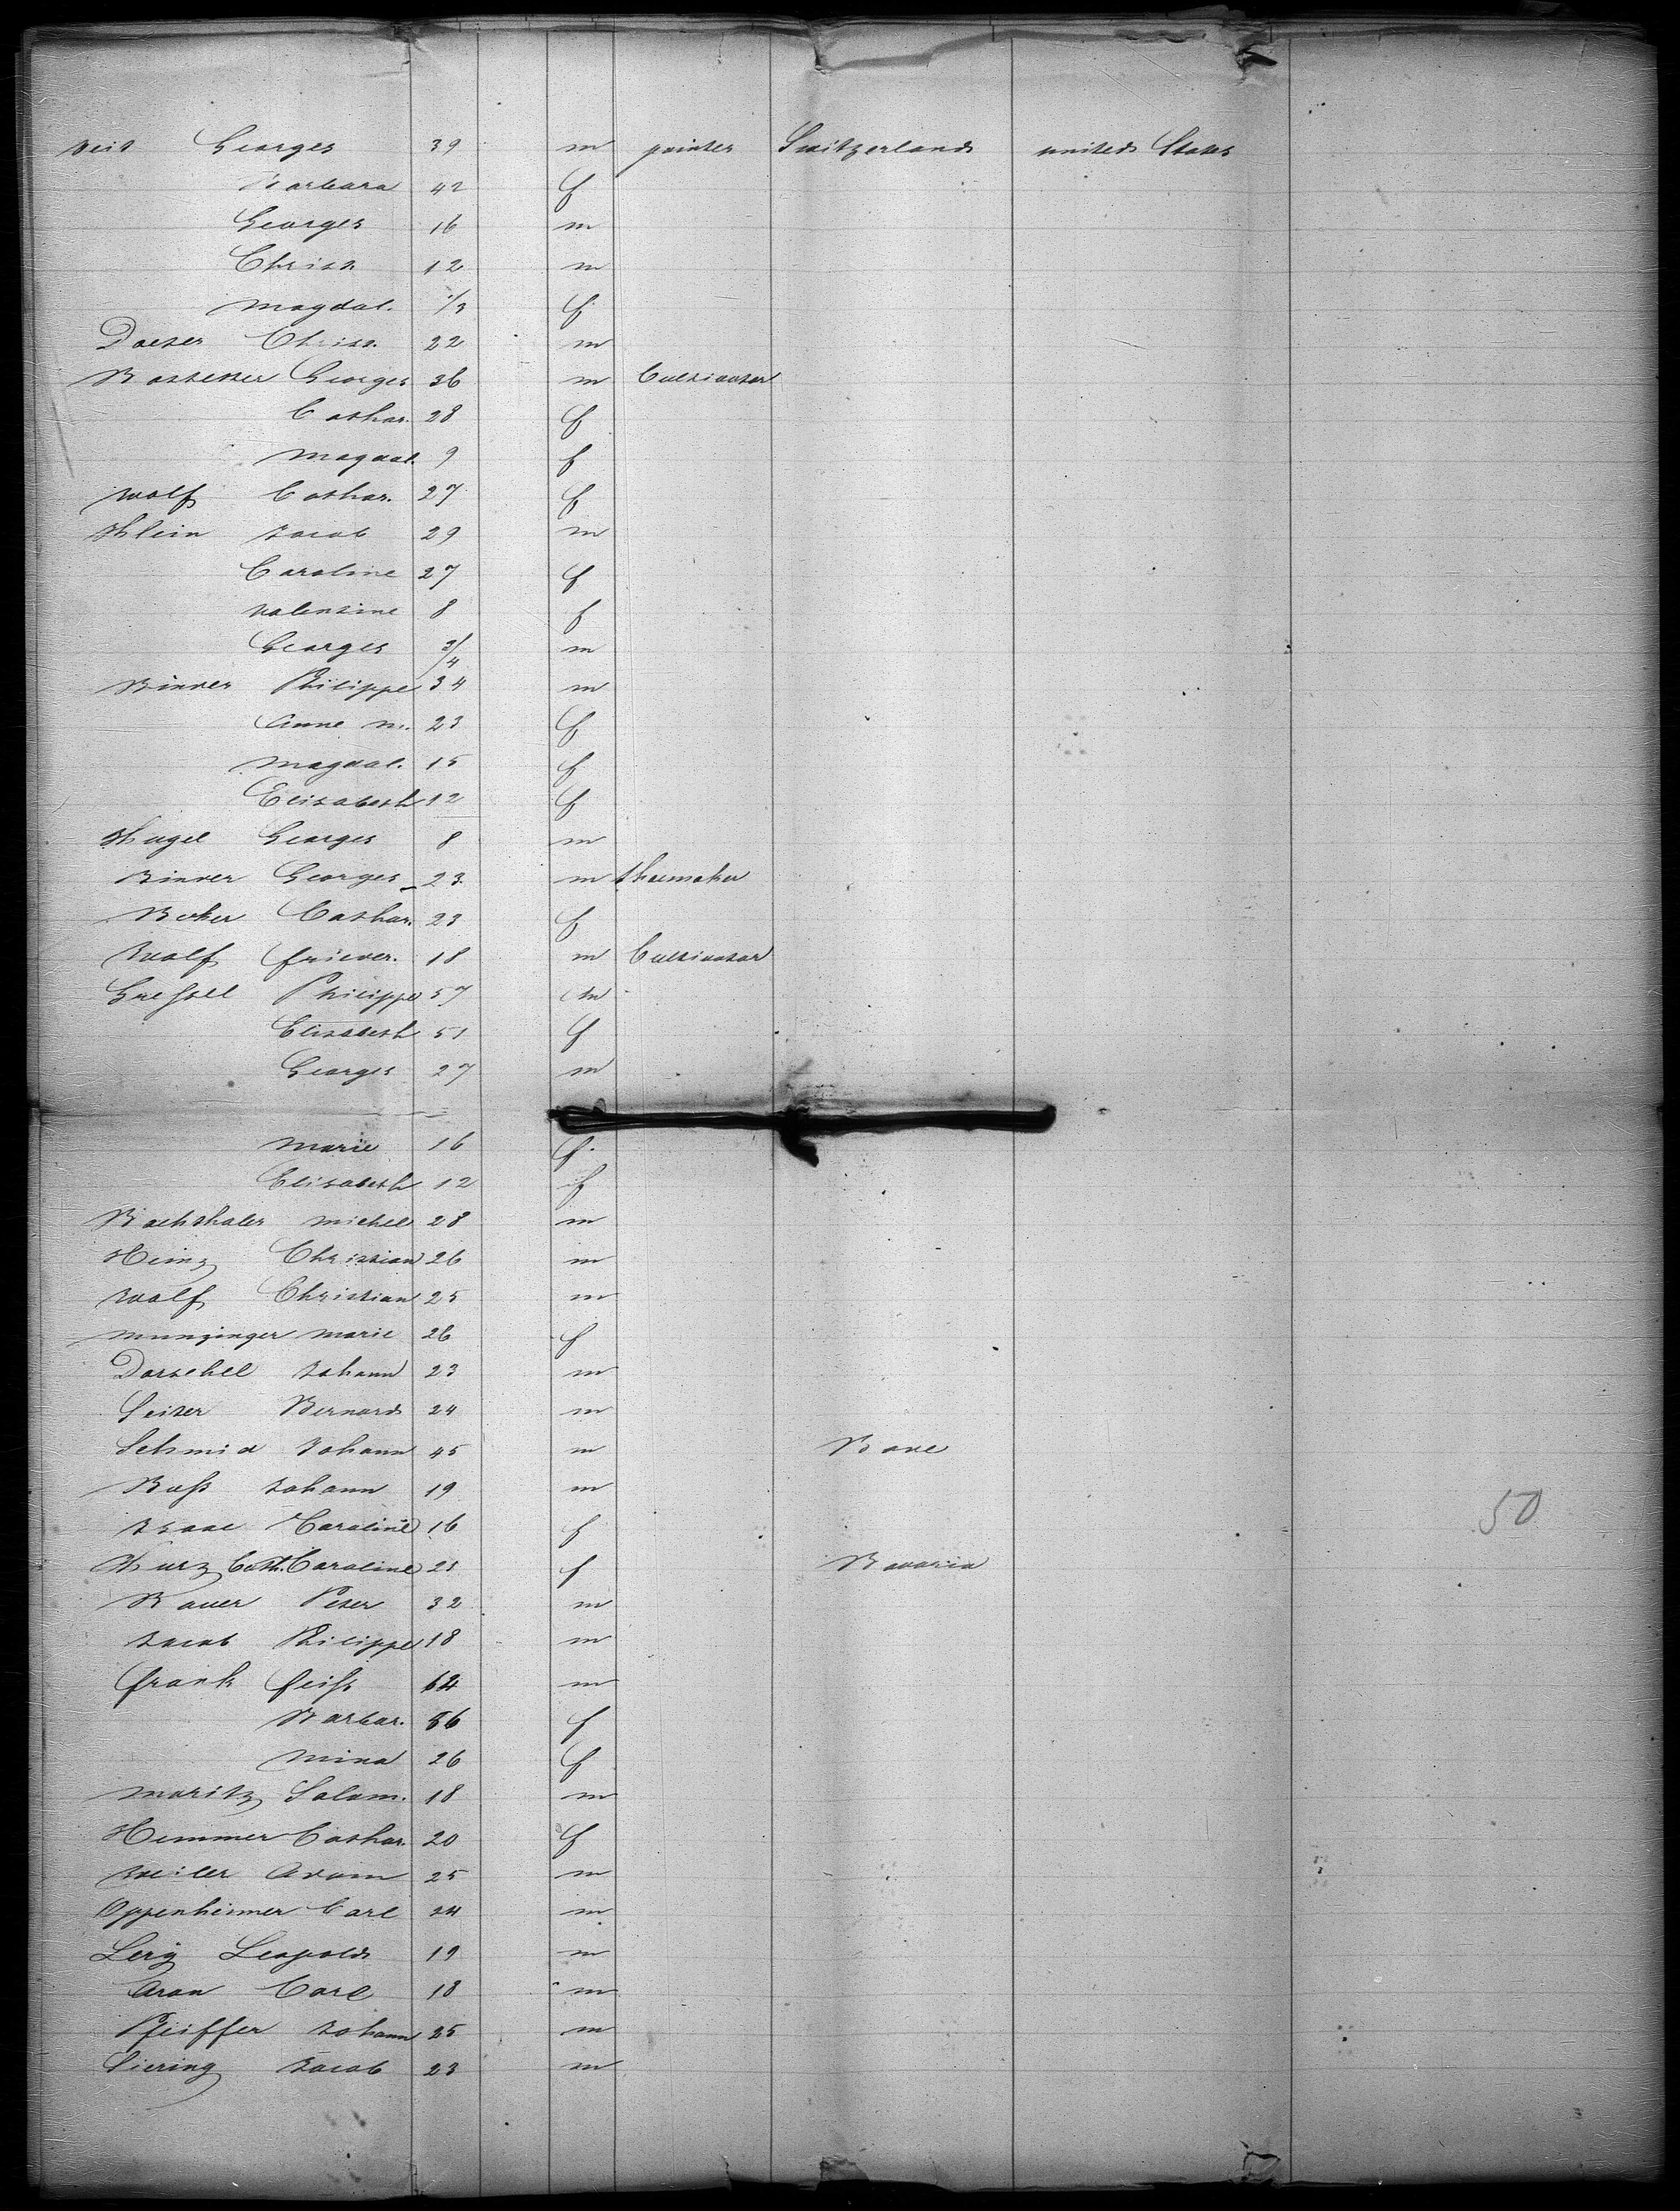 Veit Georges 39 m painter Switzerland united States
Barbara 42 f
Georges 16 m
Christ. 12 m
Magdal. 1/3 f
Daeter Christ. 22 m
Bostetter Georges 36 m Cultivator
Cathar. 28 f
Magdal. 9 f
Wolf Cathar. 27 f
Klein Jacob 29 m
Caroline 27 f
Valentine 8 f
Georges 3/4 m
Binder Philippe 34 m
Anne m. 23 f
Magdal. 15 f
Elisabeth 12 f
Kugel Georges 8 m
Binder Georges 23 m Shoemaker
Beker Cathar. 23 f
Wolf frieder. 18 m Cultivator
Philippe 57 m
Elisabeth 51 f
Georges 27 m
Marie 16 f
Elisabeth 12 f
Bachthaler Michel 28 m
Heinz Christian 26 m
Wolf Christian 25 m
Munzinger Marie 26 f
Dorschel Johann 23 m
Seiter Bernard 24 m
Schmid Johann 45 m Bade
Buss Johann 19 m
50
Isaac Caroline 16 f
Kurz Cath. Caroline 21 f Bavaria
Bauer Peter 32 m
Jacob Philippe 18 m
frank feiss 62 m
Barbar. 56 f
Mina 26 f
Moritz Salom. 18 m
Hemmer Cathar. 20 f
Weiler Adam 25 m
Oppenheimer Carl 24 m
Leopold 19 m
Aron Carl 18 m
Pfeiffer Johann 25 m
Siering Jacob 23 m